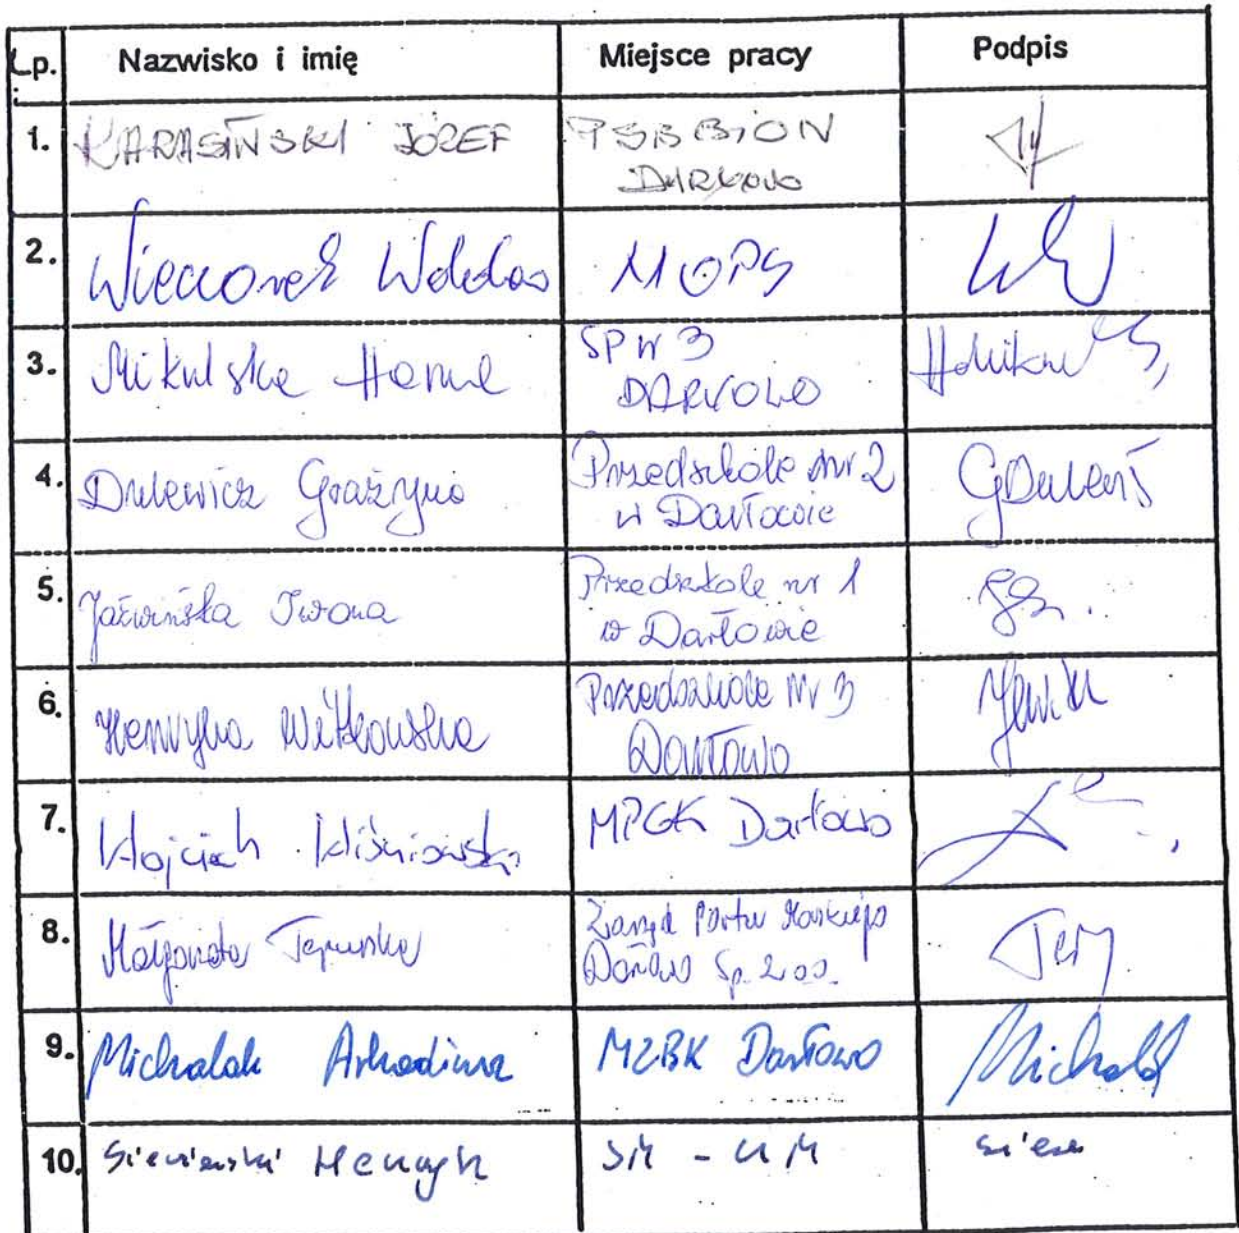 Lp. Nazwisko i imię Miejsce pracy Podpis
1. KARASIŃSKI JÓZEF
2. Wieczorek MOPS
3. Mikulska Hanna SP nr 3
DARŁOWO
4. Dulewicz Grażyna Przedszkole nr 2
w Darłowie
5. Jaźwińska Iwona Przedszkole nr 1
w Darłowie
6. Henryka Witkowska Przedszkole Nr 3
Darłowo
7. Wojciech Wiśniowski MPGK Darłowo
8. Małgorzata Zarząd Portu Morskiego
Darłowo Sp. z o.o.
9. Michalak Arkadiusz MZBK Darłowo Michalak
10. Henryk SM - UM